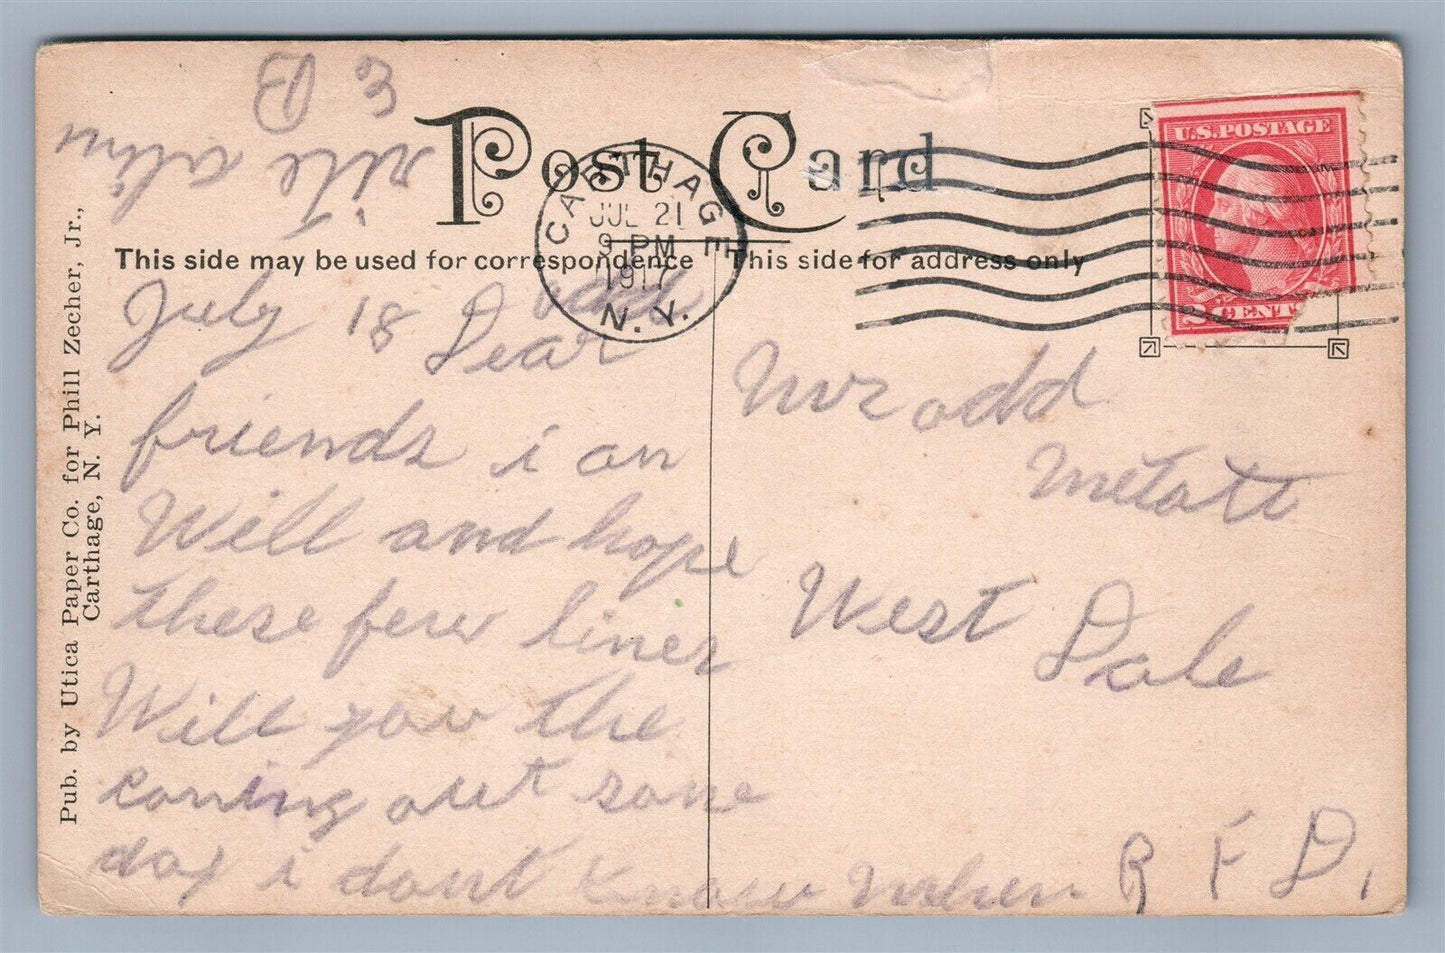 Post Card
CARTHAGE
JUL 21
9 PM
1917
N. Y.
U.S. POSTAGE
2 CENTS
This side may be used for correspondence
This side for address only
Pub. by Utica Paper Co. for Phill Zecher, Jr.,
Carthage, N. Y.
July 18 Dear
friends i an
Will and hope
these few lines
Will you the
coming out some
day i dont know when
E B
rite
Mrs odd
West Dale
R F D,